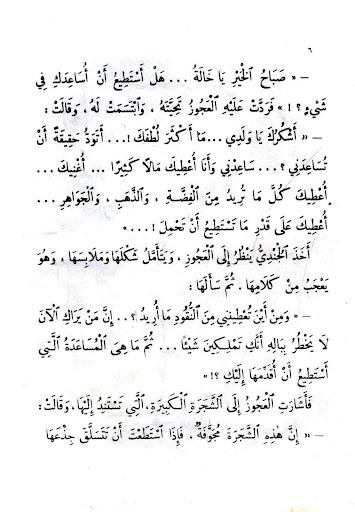 ٦
– « صَبَاحُ ٱلْخَيْرِ يَا خَالَةُ ... هَلْ أَسْتَطِيعُ أَنْ أُسَاعِدَكِ فِي
شَيْءٍ ؟ ! » فَرَدَّتْ عَلَيْهِ ٱلْعَجُوزُ تَحِيَّتَهُ ، وَٱبْتَسَمَتْ لَهُ ، وَقَالَتْ :
– « أَشْكُرُكَ يَا وَلَدِي ... مَا أَكْثَرَ لُطْفَكَ ! ... أَتَوَدُّ حَقِيقَةً أَنْ
تُسَاعِدَنِي ؟ ... سَاعِدْنِي وَأَنَا أُعْطِيكَ مَالًا كَثِيرًا ... أُغْنِيكَ ...
أُعْطِيكَ كُلَّ مَا تُرِيدُ مِنَ ٱلْفِضَّةِ ، وَٱلذَّهَبِ ، وَٱلْجَوَاهِرِ ...
أُعْطِيكَ عَلَى قَدْرِ مَا تَسْتَطِيعُ أَنْ تَحْمِلَ ! ... »
أَخَذَ ٱلْجُنْدِيُّ يَنْظُرُ إِلَى ٱلْعَجُوزِ ، وَيَتَأَمَّلُ شَكْلَهَا وَمَلَابِسَهَا ، وَهُوَ
يَعْجَبُ مِنْ كَلَامِهَا . ثُمَّ سَأَلَهَا :
– « وَمِنْ أَيْنَ تُعْطِينِي مِنَ ٱلنُّقُودِ مَا أُرِيدُ ؟ .. إِنَّ مَنْ يَرَاكِ ٱلْآنَ
لَا يَخْطُرُ بِبَالِهِ أَنَّكِ تَمْلِكِينَ شَيْئًا ... ثُمَّ مَا هِىَ ٱلْمُسَاعَدَةُ ٱلَّتِي
أَسْتَطِيعُ أَنْ أُقَدِّمَهَا إِلَيْكِ ؟! »
فَأَشَارَتِ ٱلْعَجُوزُ إِلَى ٱلشَّجَرَةِ ٱلْكَبِيرَةِ، ٱلَّتِي تَسْتَنِدُ إِلَيْهَا، وَقَالَتْ :
– « إِنَّ هٰذِهِ ٱلشَّجَرَةَ مُجَوَّفَةٌ ، فَإِذَا ٱسْتَطَعْتَ أَنْ تَتَسَلَّقَ جِذْعَهَا